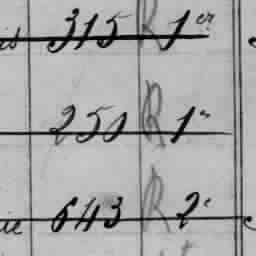 is 315 R 1er
250 R 1r
ie 643 R 2e